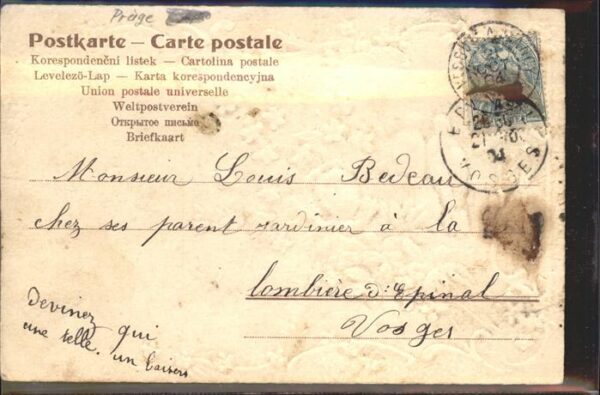 Prège
Postkarte – Carte postale
Korespondenční lístek – Cartolina postale
Levelezö-Lap – Karta korespondencyjna
Union postale universelle
Weltpostverein
Открытое письмо
Briefkaart
EPINAL
VOSGES
Monsieur Louis Bedeau
chez ses parent jardinier à la
lombière d'Epinal
Vosges
Devinez qui
une belle, un baisers